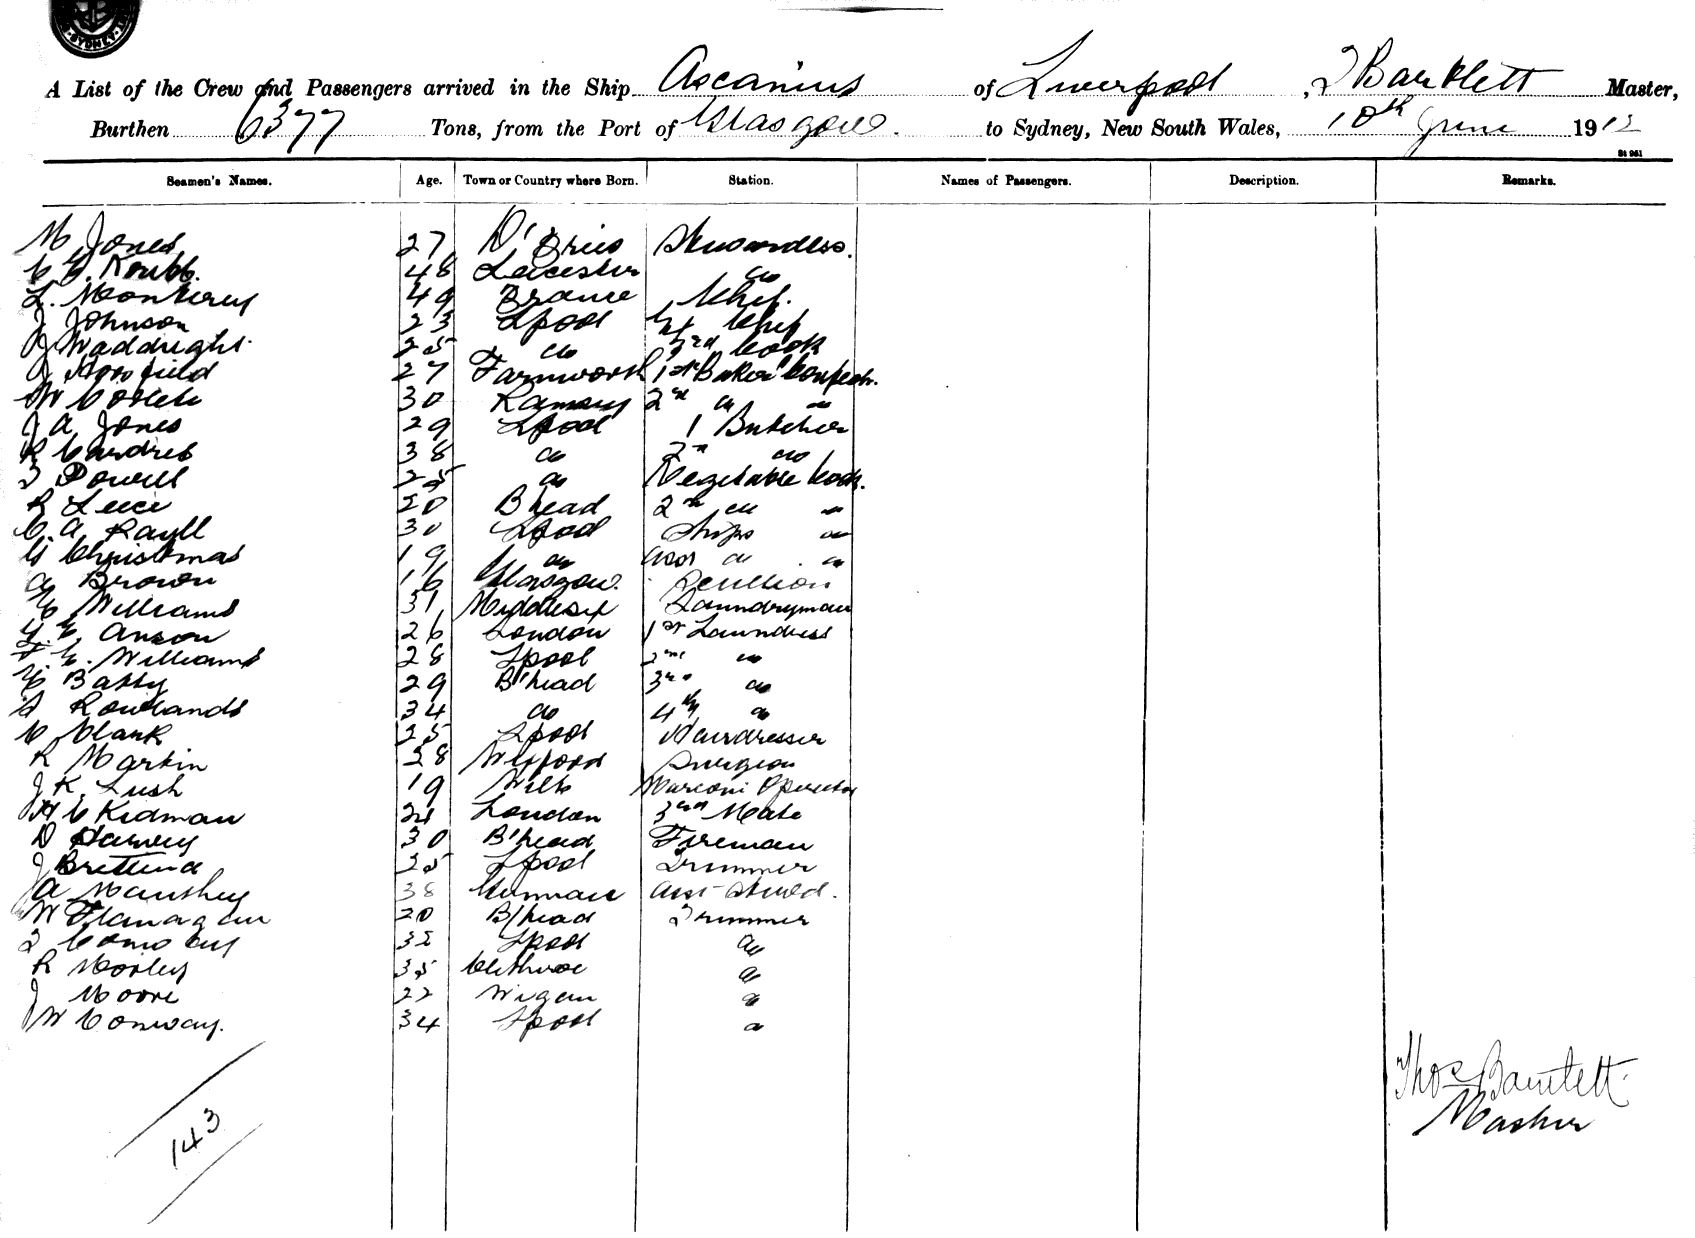 SYDNEY
A List of the Crew and Passengers arrived in the Ship Ascanius of Liverpool, T Bartlett Master,
Burthen 6377 Tons, from the Port of Glasgow. to Sydney, New South Wales, 10th June 1912
St 961
Seamen's Names. Age. Town or Country where Born. Station. Names of Passengers. Description. Remarks.
M Jones 27 Stewardess.
48 Leicester do
49 France Chef.
J Johnson 23 Lpool Chef
25 do 3rd Cook
27 Farnworth 1st Baker Confectr.
W 30 Ramsey 2nd do do
J A Jones 29 Lpool 1 Butcher
R 38 do 2nd do
T Powell 25 do Vegetable Cook.
R Leece 20 Bhead 2nd do "
C. A. Rayll 30 Lpool Ships do
Christmas 19 do Asst do do
A Brown 16 Glasgow. Scullion
E Williams 31 Middlesex Laundryman
Anson 26 London 1st Laundress
E. Williams 28 Lpool 2nd do
E Batty 29 B'head 3rd do
Rowlands 34 do 4th do
C Clark 25 Lpool Hairdresser
R Martin 28 Wexford Surgeon
J K Lush 19 Wilts Marconi Operator
H C Kidman 21 London 3rd Mate
D Harvey 30 B'head Fireman
J 25 Lpool Trimmer
A 38 Germany Asst Stewd.
W Flanagan 20 B/head Trimmer
T 32 Lpool do
R Morley 35 Clitheroe do
J Moore 22 Wigan do
W Conway. 34 Lpool do
Thos Bartlett.
Master
143